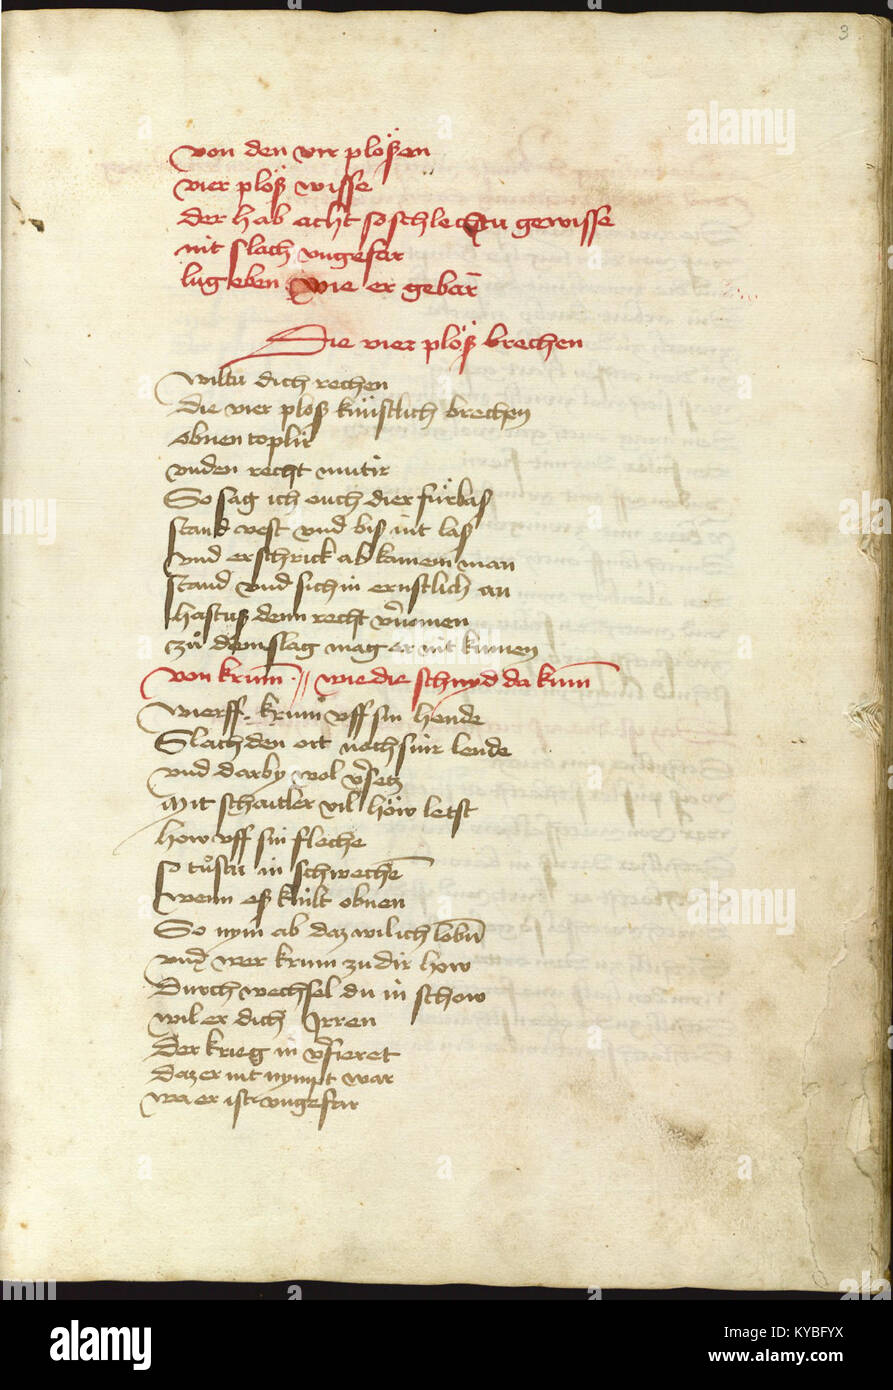 3
von den vir plößen
vier plöß wisse
der hab acht so schlechstu gewisse
nit slach vngefar
lug eben wie er gebar̄
Die vier plöß brechen
wiltu dich rechen
die vier ploß künstlich brechen
obnen toplir
vnden recht mutir
So sag ich ouch dier fürbas
stand vest vnd bis nit las
vnd erschrick ab kainem man
stand vnd sich in ernstlich an
hastuß denn recht v̄nomen
zů dem slag mag er nit kumen
von krum̄ · // wie die schnyd da kum̄
wierff krum vff sin hende
Slach den ort noch sinr lende
vnd darby wol v̄setz
Mit schaitler vil höw letst
how vff sin fleche
so tůstu in schweche͂
wenn eß knült obnen
So nym ab daz wil ich lobn̄
vnd wer krum zu dir how
Durchwechsel du in schow
wil er dich Irren
Der krieg in v̄fieret
daz er nit nympt war
wa er ist vngefar
alamy
Image ID: KYBFYX
www.alamy.com